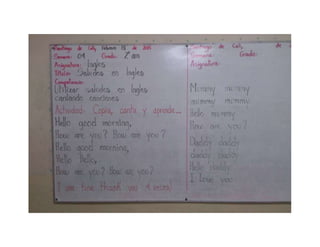 Santiago de Cali, Febrero 15 de 2015
Semana: 04 Grado: 2º
Asignatura: Ingles
Título: Saludos en Ingles
Competencia:
Utilizar saludos en Ingles
cantando canciones
Actividad: Copia, canta y aprende...
Hello good morning,
How are you? How are you?
Hello good morning,
Hello hello,
How are you? How are you?
I am fine thank you
Santiago de Cali, de
Semana: Grado:
Asignatura:
Mommy mommy
mommy mommy
Hello mommy
How are you?
Daddy daddy
daddy daddy
Hello daddy
I love you